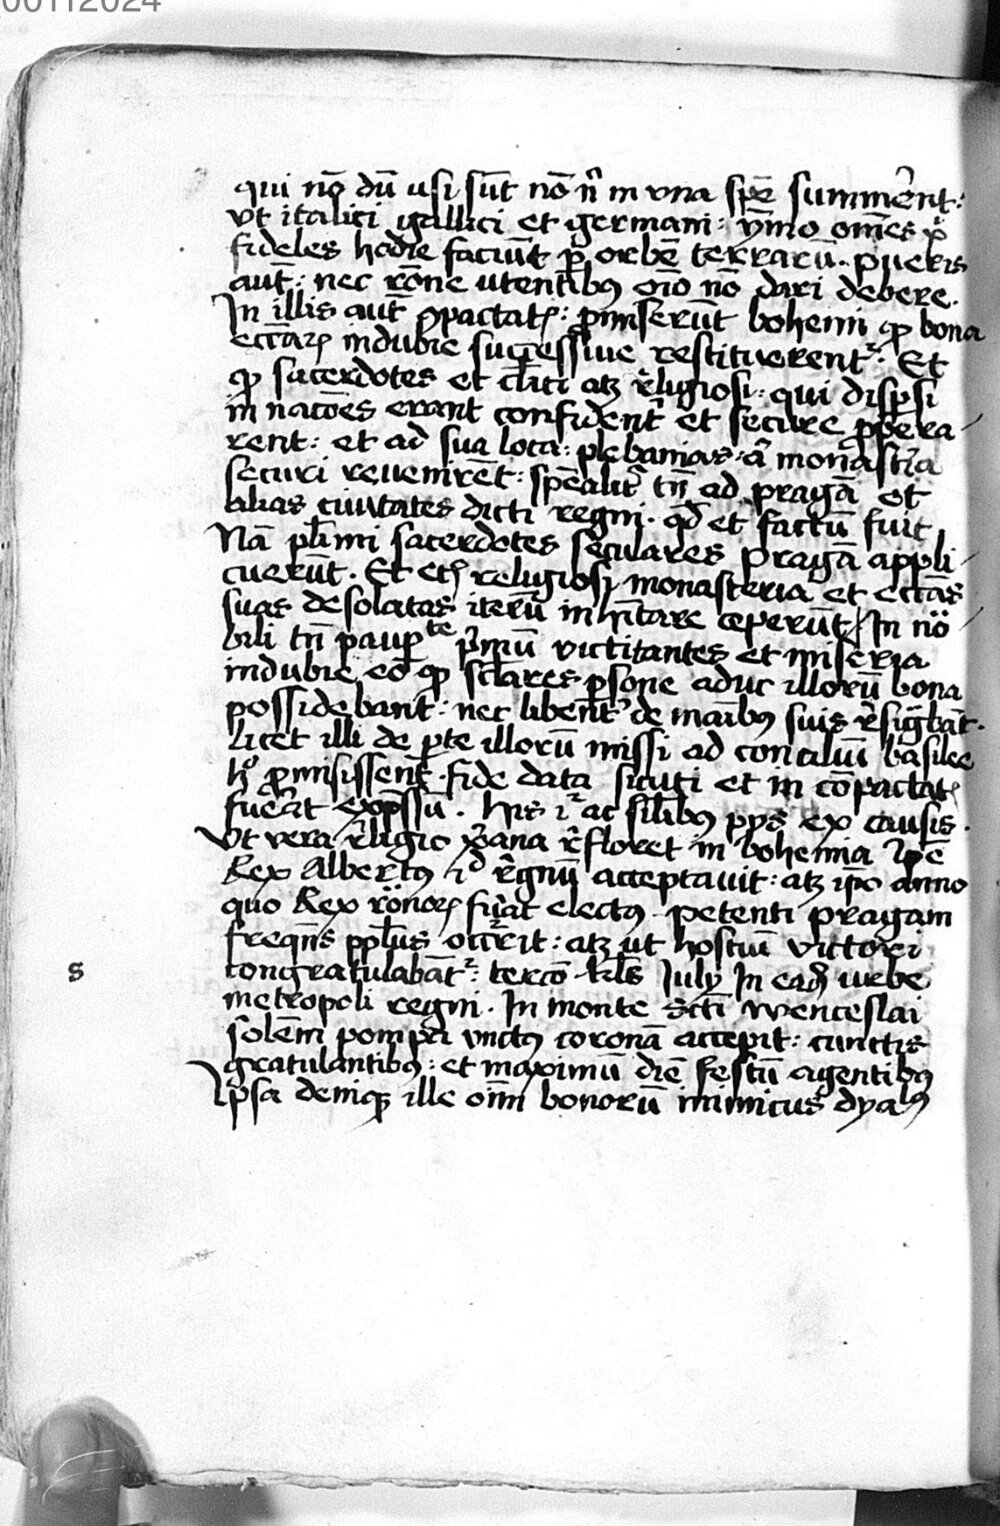 00112024
qui nō dū usi sūt nō n̄ in vna spē summer̄ent :
vt italici gallici et germani : ymo om̄es xp̄i
fideles hodie faciūt p̱ orbē terrarū . pueris
aūt : nec rōne utentibꝰ oīo nō dari debere .
In illis aūt ꝯpactatꝭ : ꝓmiserūt bohemi ꝙ bona
eccāꝝ indubie successiue restituerentᷣ . Et
ꝙ sacerdotes et clīci atꝫ r̄ligiosi : qui disꝑsi
in nacōes erant confident̄ et secure ꝓpera
rent : et ad sua loca : plebanias : a͛ monast͛ia
securi reuenirēt : spēalit͛ tn̄ ad pragā et
alias ciuitates dicti regni . qd̄ et factū fuit
Nā pl̄imi sacerdotes seculares Pragā appli
cuerūt . Et etꝭ religiosi monasteria et ecclās
suas desolatas iterū inhītare ceperūt In nō
bili tn̄ paupꝑte pͥmū victitantes et miseria
indubie eo ꝙ sclāres ꝑsone aduc illorū bona
possidebant : nec libent͛ de maībꝰ suis r̄signabāt .
Licet illi de ꝑte illorū missi ad conciliū basilee
h° ꝓmisissent . fide data sicuti et in cōpactatꝭ
fuerat expr̄ssū . his iᷣ ac silibꝰ ppꝭ ex causis .
Vt vera r̄ligio xp̄iana r̄floret in bohemia Ip̄e
Rex Albertꝰ id r̄gnū acceptauit : atꝫ ip̄o anno
quo Rex rōnoꝝ fuāt electꝰ . petenti pragam
freqn̄s ppl̄us occr̄rit : atꝫ ut hostiū victori
congratulabātᷣ : tercō kl̄s July In eadꝫ urbe
s
metropoli regni . In monte scti wenceslai
solēm pompa vnctꝰ coronā accepit : cunctis
gratulantibꝰ : et maximū diē festū agentibꝰ
Ipsa deniqꝫ ille oīm bonorū inimicus dyabꝰ